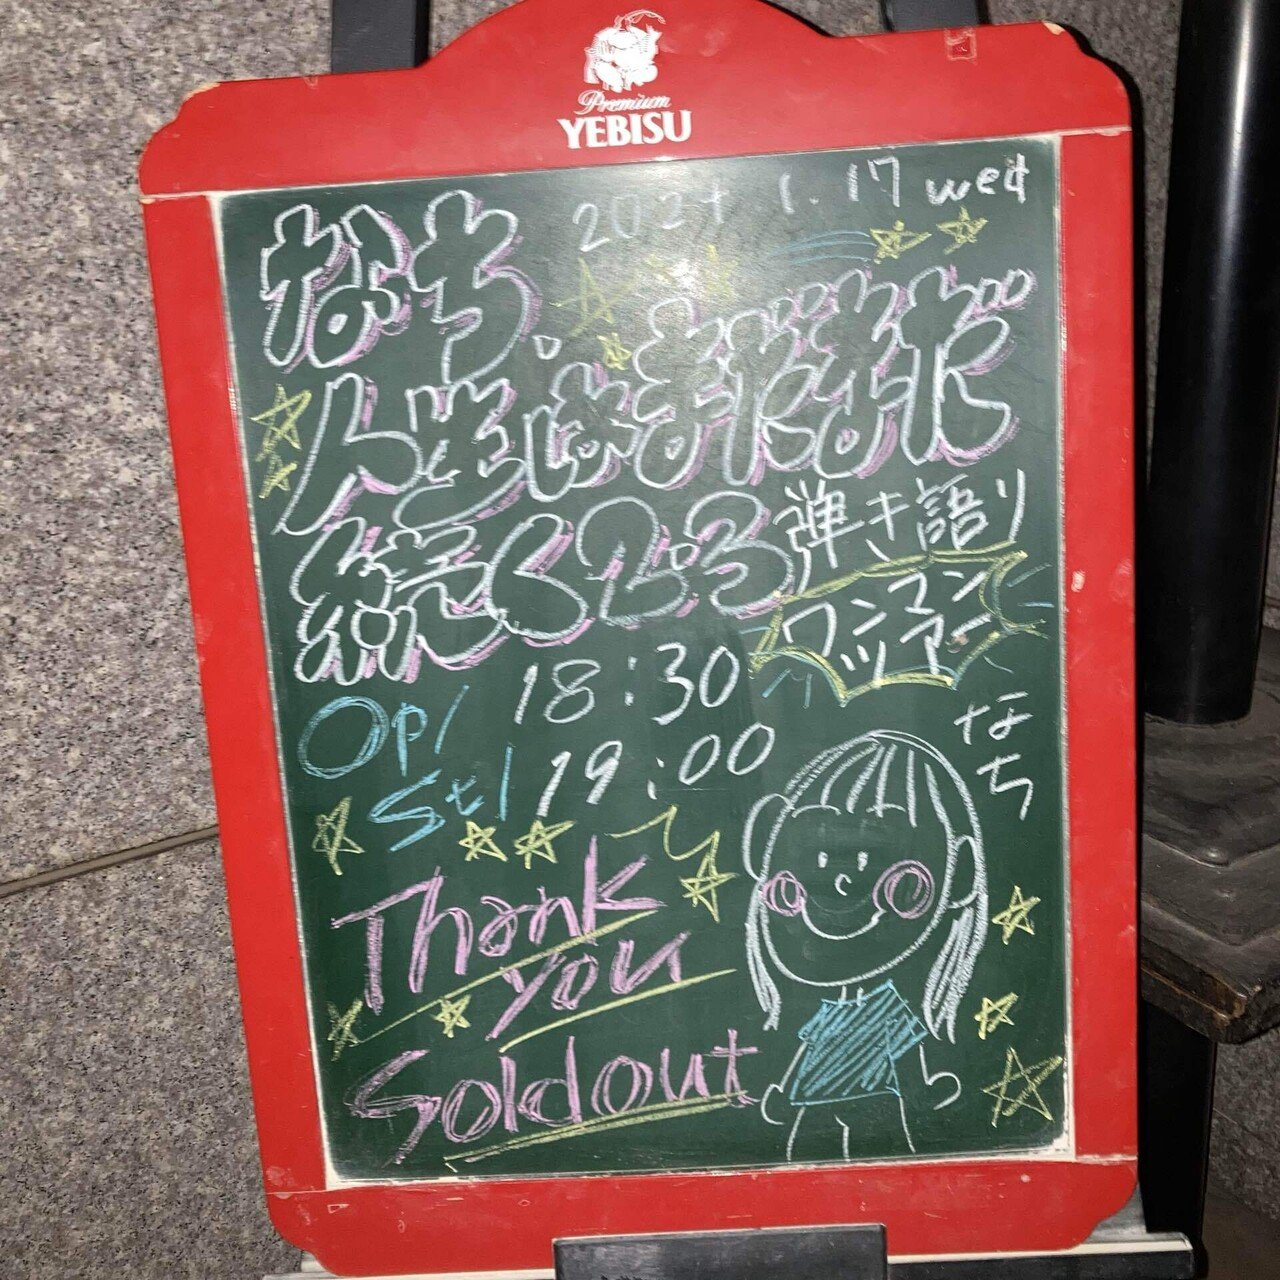 Premium
YEBISU
2024 1.17 wed
なち
人生はまだまだ
続く2.3
弾き語り
ワンマン
ツアー
Op/ 18:30
St/ 19:00
なち
Thank
you
Soldout